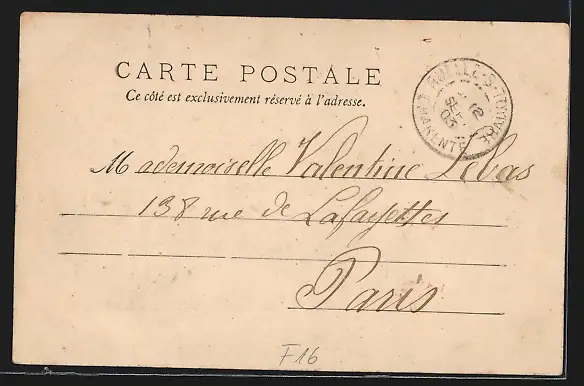 CARTE POSTALE
Ce côté est exclusivement réservé à l'adresse.
RUELLE-S-TOUVRE
12
SEPT
03
CHARENTE
Mademoiselle Valentine Lebas
138 rue de Lafayettes
Paris
F16